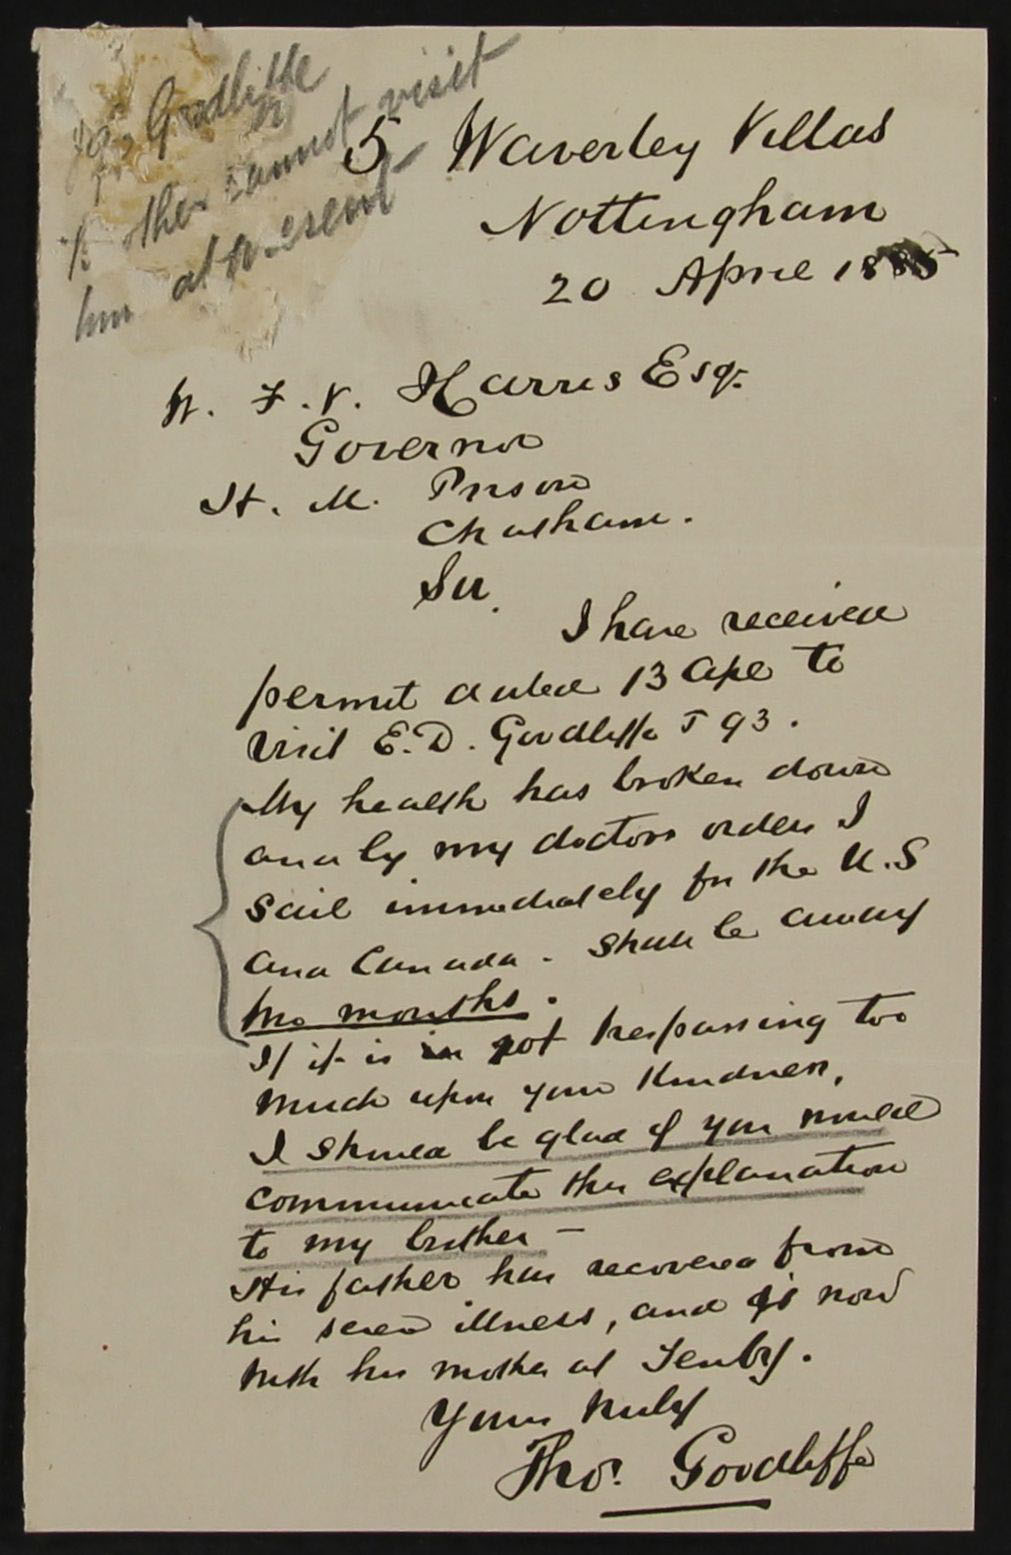 Goodliffe
Brother cannot visit
him at present
5 Waverley Villas
Nottingham
20 April 1885
W. F. V. Harris Esqr.
Governor
H. M. Prison
Chatham.
Sir.
I have received
permit dated 13 Ape to
visit E. D. Goodliffe J 93.
My health has broken down
and by my doctors orders I
sail immediately for the U.S
and Canada. Shall be away
two months.
If it is not trespassing too
much upon your kindness,
I should be glad if you would
communicate this explanation
to my brother –
His father has recovered from
his severe illness, and is now
with his mother at Tenby.
Yours truly
Thos. Goodliffe